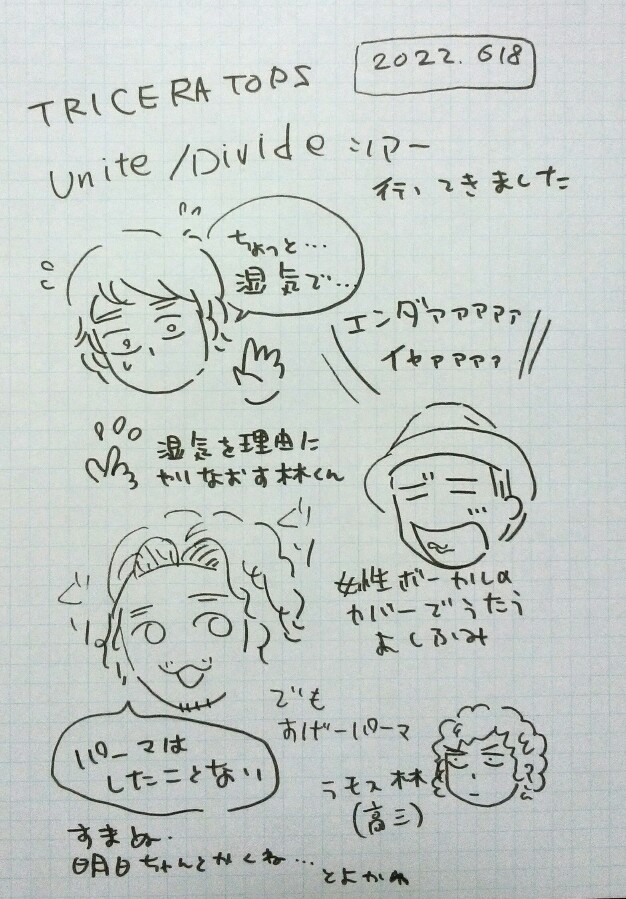 2022.618
TRICERATOPS
Unite/Divide ツアー
行ってきました
ちょっと…
湿気で…
エンダァァァァァ
イヤァァァァ
湿気を理由に
やりなおす林くん
ぐり
ぐり
女性ボーカルの
カバーでうたう
よしふみ
でも
すげーパーマ
パーマは
したことない
ラモス林
(高三)
すまぬ.
明日ちゃんとかくね…